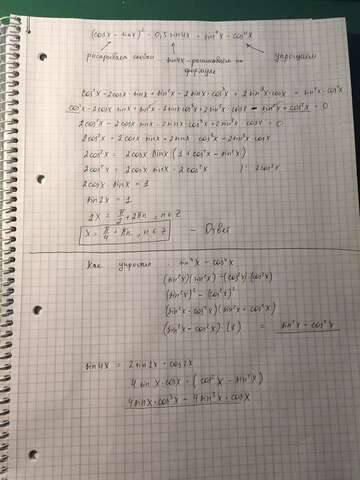 (cosx - sinx)² - 0,5 sin4x = sin⁴x - cos⁴x
раскрываем скобки sin4x - расписываем по формуле упрощаем
cos²x - 2cosx · sinx + sin²x - 2sinx · cos³x + 2sin³x · cosx = sin²x - cos²x
cos²x - 2cosx · sinx + sin²x - 2sinx cos³x + 2sin³x · cosx - sin²x + cos²x = 0
2cos²x - 2cosx · sinx - 2sinx · cos³x + 2sin³x · cosx = 0
2cos²x = 2cosx · sinx + 2sinx · cos³x - 2sin³x · cosx
2cos²x = 2cosx · sinx (1 + cos²x - sin²x)
2cos²x = 2cosx · sinx · 2cos²x | : 2cos²x
2cosx · sinx = 1
sin2x = 1
2x = π/2 + 2πn, n ∈ Z
x = π/4 + πn, n ∈ Z - Ответ
Как упростили: sin⁴x - cos⁴x
(sin²x)(sin²x) - (cos²x)(cos²x)
(sin²x)² - (cos²x)²
(sin²x - cos²x)(sin²x + cos²x)
(sin²x - cos²x) · (1) = sin²x - cos²x
sin4x = 2sin2x · cos2x
4sinx · cosx · (cos²x - sin²x)
4sinx · cos³x - 4sin³x · cosx